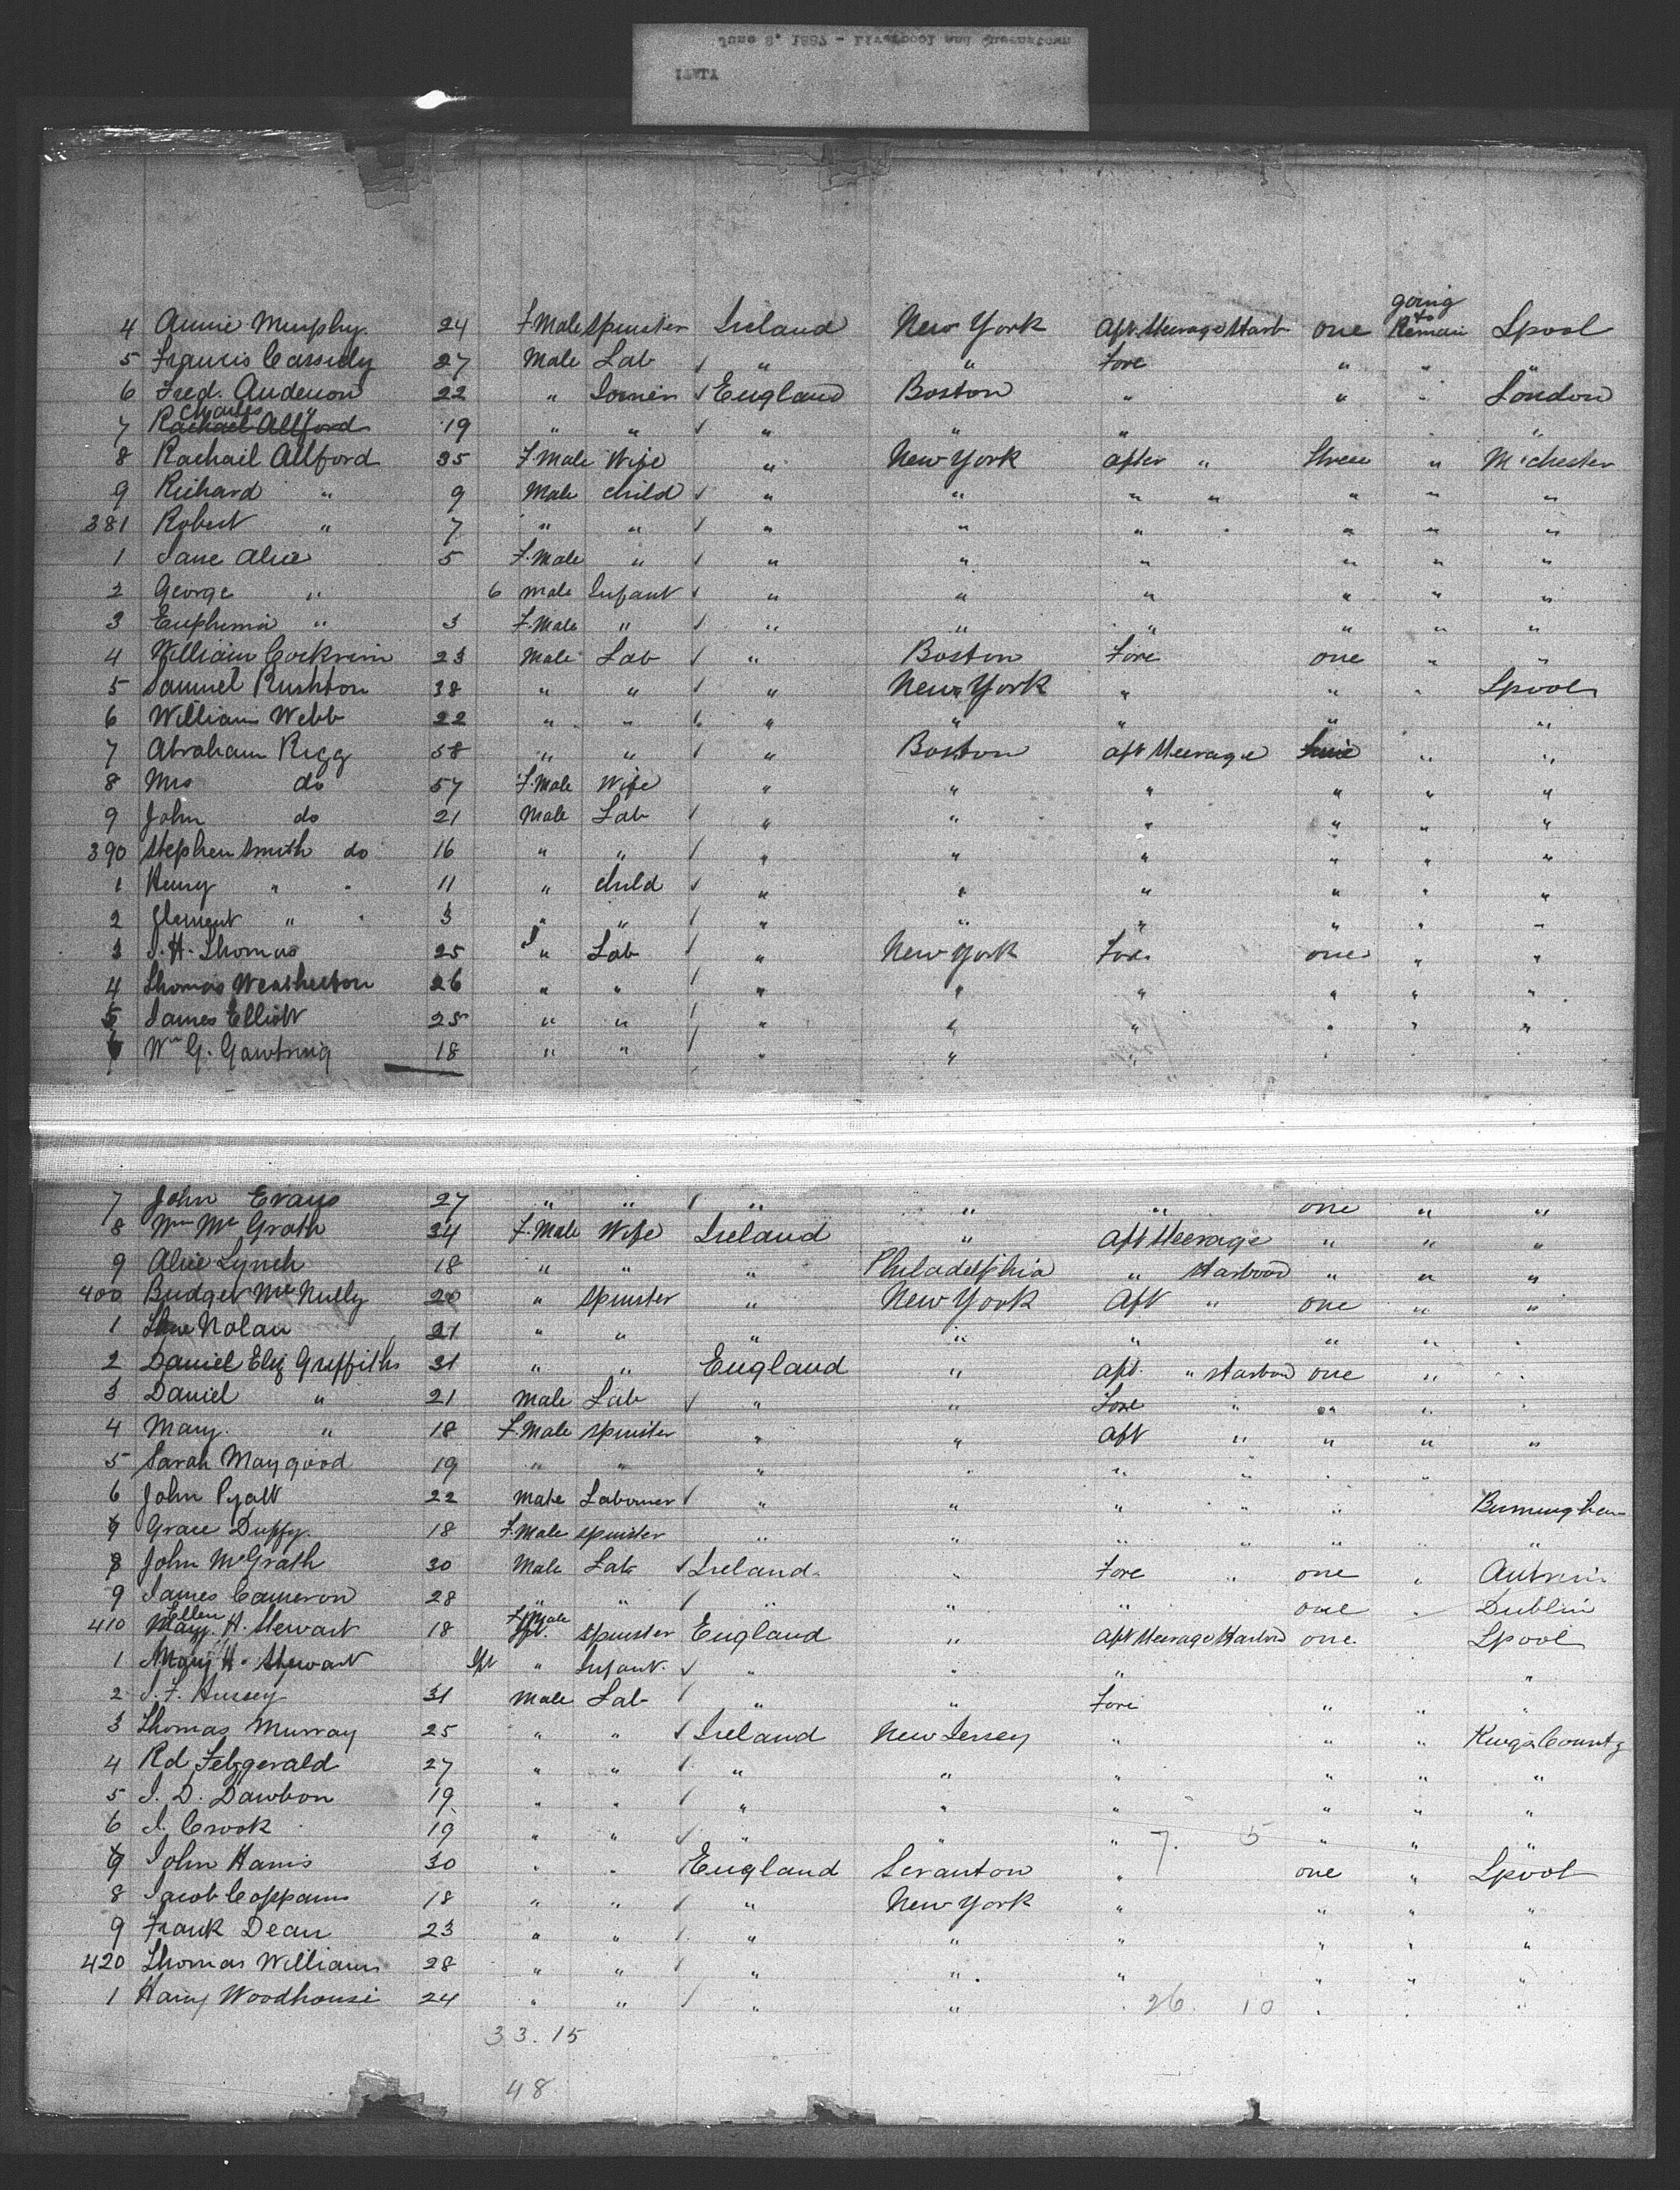 June 8, 1887 - Liverpool and Queenstown
going to
4 Annie Murphy. 24 F. Male Spinster Ireland New York Aft. Steerage Starb one Remain Lpool
5 Francis Cassidy 27 Male Lab ✓ " " Fore " " "
6 Fred. Anderson 22 " ✓ England Boston " " " London
Charles "
7 Rachael Allford 19 " " ✓ " " " " "
8 Rachail Allford 35 F. Male Wife " New York after " three " M'chester
9 Richard " 9 Male child ✓ " " " " " " "
381 Robert " 7 " " ✓ " " " " " "
1 Jane Alice 5 F. Male " ✓ " " " " " "
2 George " 6 male Infant ✓ " " " " " "
3 Euphemia " 3 F. Male " ✓ " " " " " "
4 William 23 Male Lab ✓ " Boston Fore one " "
5 Samuel Rushton 38 " " ✓ " New York " " " Lpool
6 William Webb 22 " " ✓ " " " " "
7 Abraham Rigg 58 " " ✓ " Boston aft Steerage " "
8 Mrs do 57 F. Male Wife " " " " " "
9 John do 21 Male Lab ✓ " " " " " "
390 Stephen Smith do 16 " " ✓ " " " " " "
1 Henry " " 11 " child ✓ " " " " " "
2 Clement " " 3 " " ✓ " " " " " "
3 J. H. Thomas 25 " Lab ✓ " New York Fore one " "
4 Thomas Weatherton 26 " " ✓ " " " " " "
5 James Elliott 25 " " ✓ " " " " " "
Wm G. 18 " " ✓ " " "
7 John Evans 27 " " ✓ " " " one " "
8 Wm Mc Grath 34 F. Male Wife Ireland " Aft Steerage " " "
9 Alice Lynch 18 " " " Philadelphia " Starboard " " "
400 Bridget Mc Nully 20 " Spinster " New York Aft " one " "
1 Nolan 21 " " " " " " " "
2 Daniel Eliz Griffiths 31 " " England " aft. " Starboard one " "
3 Daniel " 21 Male Lab ✓ " " Fore " " " "
4 Mary. " 18 F. Male Spinster " " Aft " " " "
5 Sarah Maygood 19 " " " " " " " "
6 John Pyatt 22 Male Labourer ✓ " " " " " Birmingham
7 Grace Duffy. 18 F. Male Spinster " " " " " "
8 John McGrath 30 Male Lab ✓ Ireland " Fore " one " Antrim
9 James Cameron 28 " " ✓ " " " one " Dublin
Ellen F. Male
410 Mary. H. Stewart 18 Spinster England " Aft Steerage Starbord one. Lpool
1 Mary H. Stewart " Infant. ✓ " " " "
2 J. F. Hussey 31 Male Lab ✓ " " Fore " " "
3 Thomas Murray 25 " " ✓ Ireland New Jersey " " " Kings County
4 Rd Fetzgerald 27 " " ✓ " " " " " "
5 J. D. Dawson 19 " " ✓ " " " " " "
6 J. Crook 19 " " ✓ " " " 7. 5 " " "
9 John Harris 30 " " England Scranton " one " Lpool
8 Jacob Coppams 18 " " ✓ " New York " " " "
9 Frank Dean 23 " " ✓ " " " " " "
420 Thomas Williams 28 " " ✓ " " " " " "
1 Harry Woodhouse 24 " " ✓ " " " 26. 10 " " "
33. 15
48